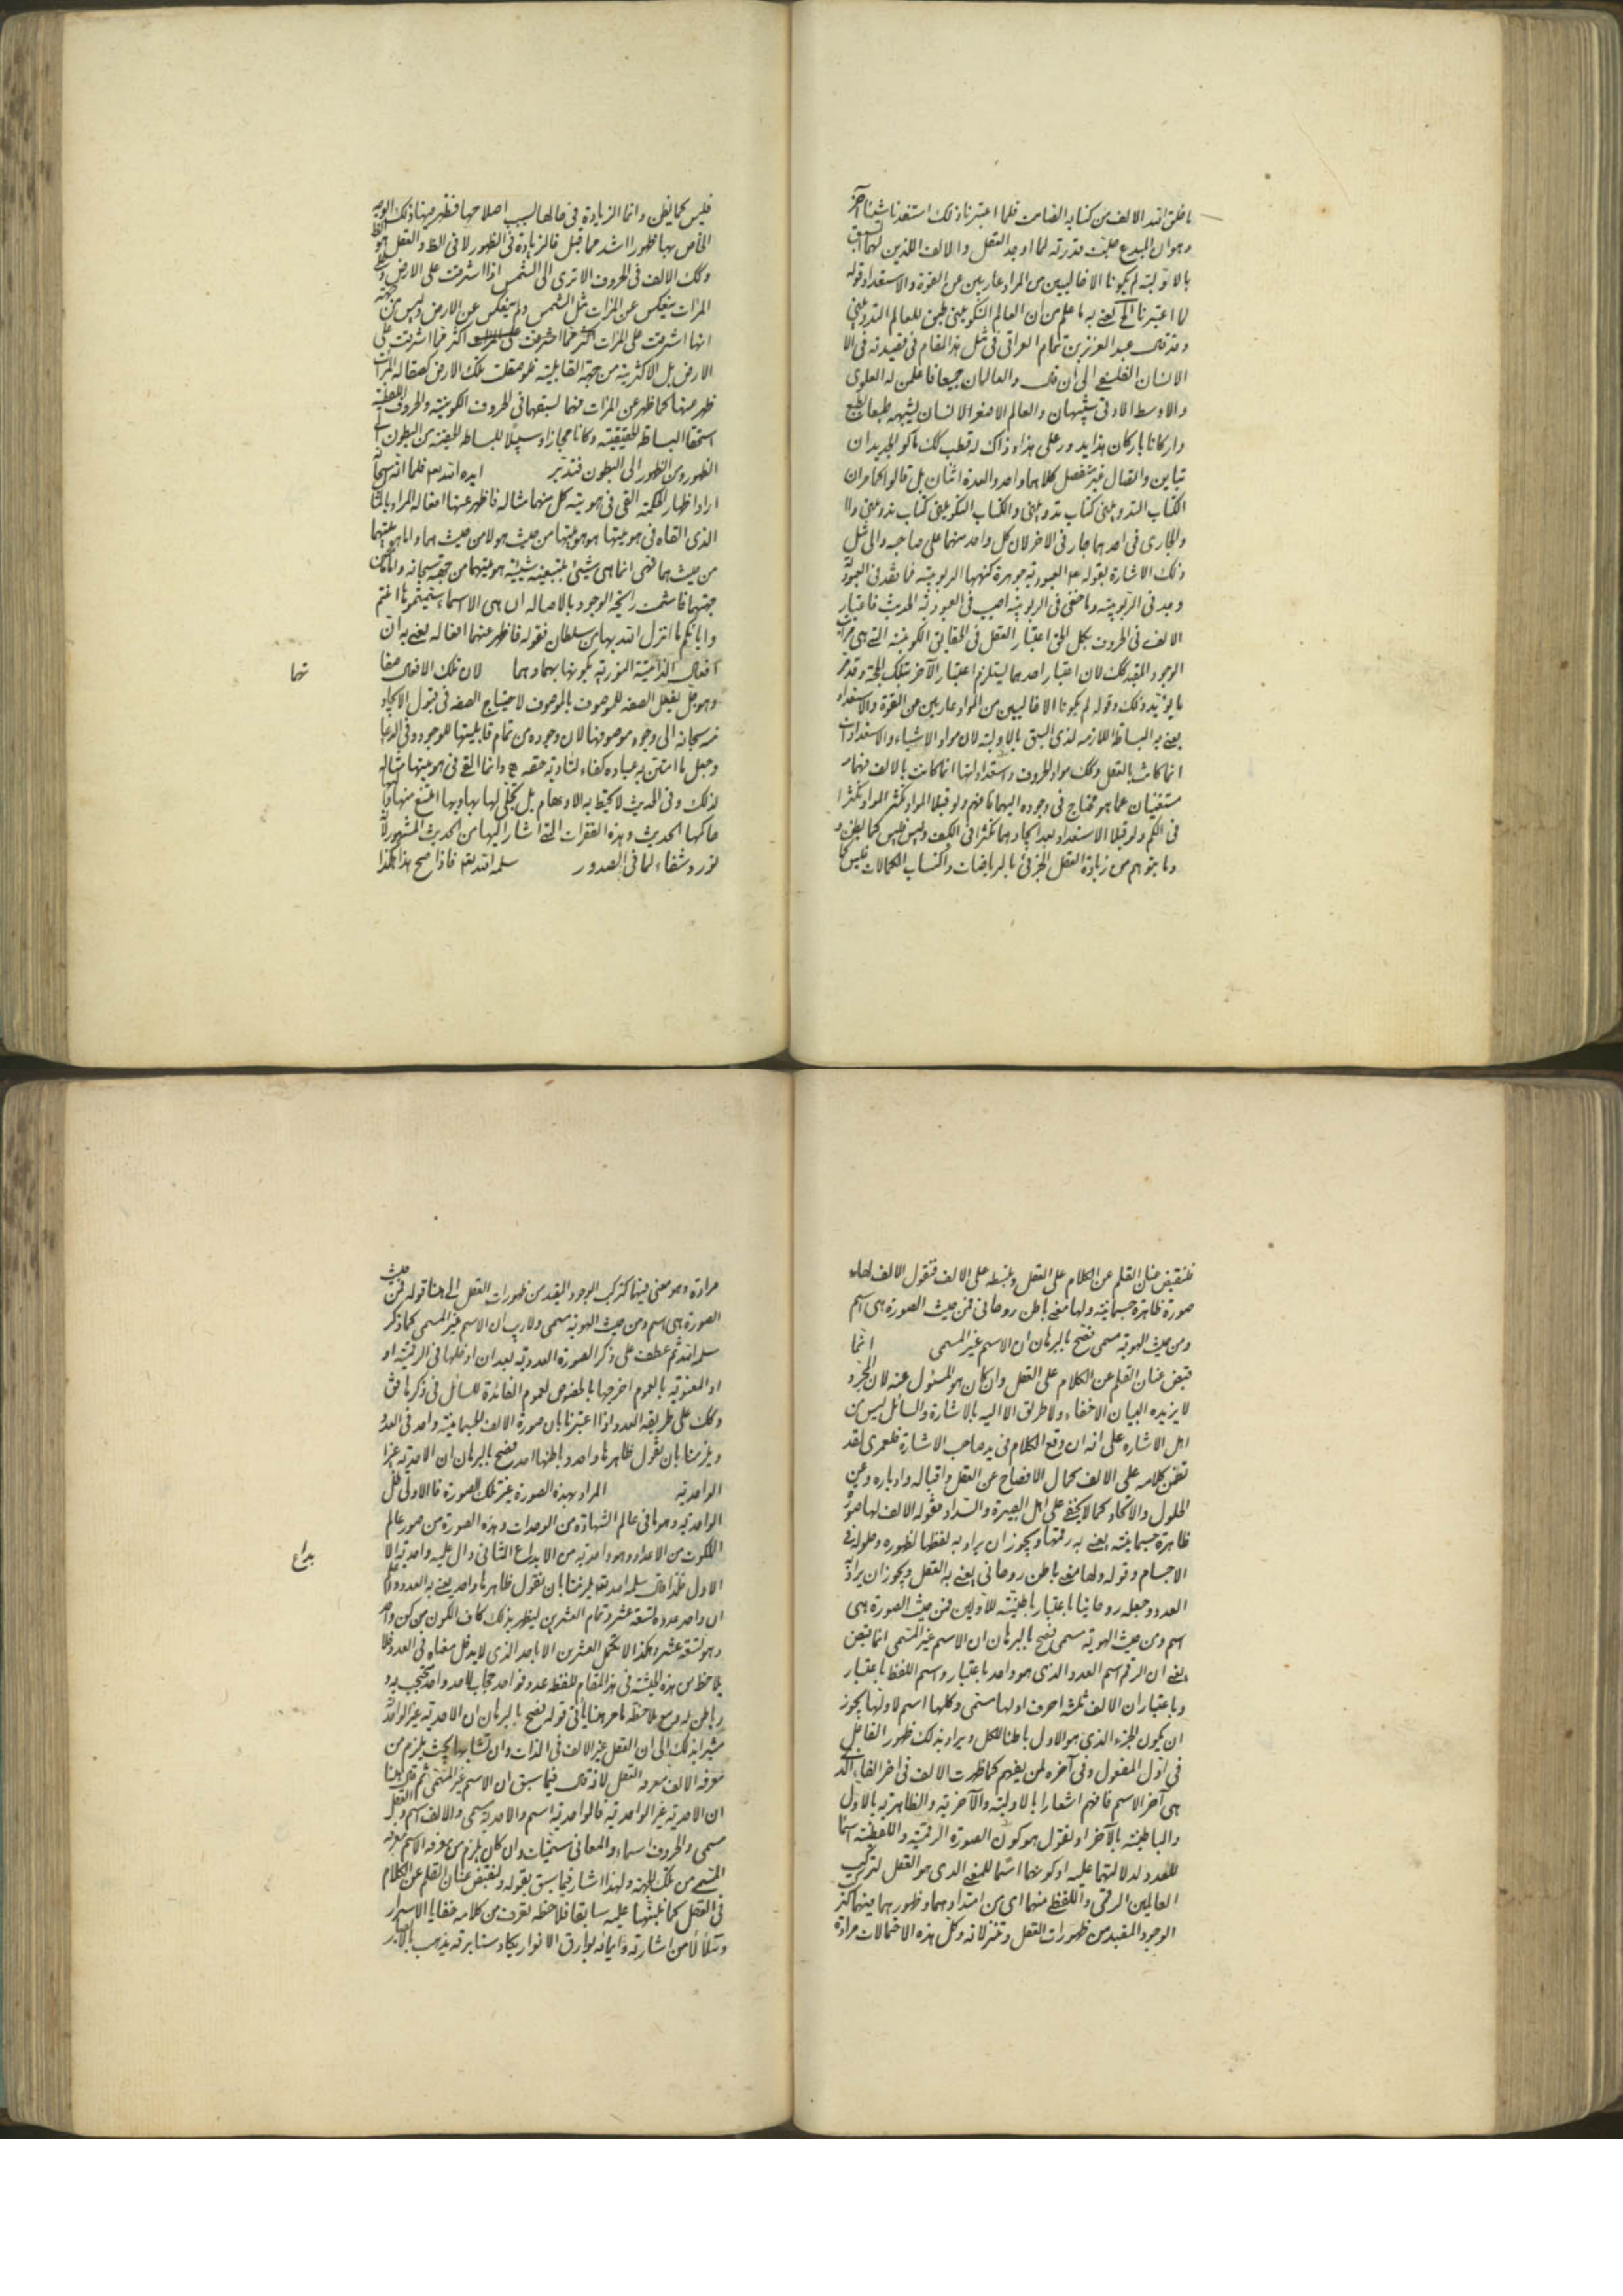 ما خلق الله الالف من كتابه الصامت فلما اعتبرنا ذلك استفدنا شيئا آخر
وهو ان المبدع جلت قدرته لما اوجد العقل والالف اللذين لهما السبق
بالاولية لم يكونا الا خاليين من المراد عاريين عن القوة والاستعداد قوله
لما اعتبرنا الخ يعني به ما علم من ان العالم التكويني طبق للعالم التدويني
وقد قال عبد العزيز بن تمام العراقي في مثل هذا المقام في قصيدته في الا
الانسان الفلسفي الى ان قال والعالمان جميعا فاعلمن له العلوي
والاوسط الادنى شبيهان والعالم الاصغر الانسان يشبهه طبعا بطبع
واركانا باركان هذا يدور على هذا وذاك له قطب كذلك ما كر الجديدان
تباين والقبال غير منفصل كلاهما واحد والعدة اثنان بل قالوا
الكتاب التدويني كتاب تكويني والكتاب التكويني كتاب تدويني
والجاري في احدهما جار في الاخر لان كل واحد منهما على صاحبه والى مثل
ذلك الاشارة بقوله العبودية جوهرة كنهها الربوبية فما فقد في العبودية
وجد في الربوبية وما خفى في الربوبية اصيب في العبودية الحديث فاعتبار
الالف في الحروف بكل الحق اعتبار العقل في الحقايق الكونية التي هي مراتب
الوجود المقيد كذلك لان اعتبار احدهما يستلزم اعتبار الآخر بتلك الجهة وقد مر
ما يؤيد ذلك وقوله لم يكونا الا خاليين من المواد عاريين عن القوة والاستعداد
يعني به البساطة اللازمة لذي السبق بالاولية لان مواد الاشياء والاستعدادات
انما كانت بالعقل وكذلك مواد الحروف واستعداداتها انما كانت بالالف فهما
مستغنيان عما هو محتاج في وجوده اليهما فافهم ولو قبلا المواد لتكثرا
في الكم ولو قبلا الاستعداد بعد ايجادهما لتكثرا في الكيف وليس فليس كما يظن
وما يتوهم من زيادة العقل الجزئي بالرياضات واكتساب الكمالات فليس كما
فليس كما يظن وانما الزيادة في حالها لسبب اصلاحها فظهر منها ذلك الوجه
الخاص بها ظهورا اشد مما قبل فالزيادة في الظهور لا في الظ والعقل هو الظ
وكذلك الالف في الحروف الا ترى الى الشمس اذا اشرقت على الارض وعلى
المرات ينعكس عن المرات مثل الشمس ولم ينعكس عن الارض وليس من جهة
انها اشرقت على المرات اكثر مما اشرقت على
الارض بل الاكثرية من جهة القابلية فلو صقلت تلك الارض كصقالة المرات
ظهر عنها كما ظهر عن المرات فهما لسبقهما في الحروف الكونية والحروف اللفظية
استحقا البساطة الحقيقية وكانا مجازا وسبيلا للبساطة من البطون الى
الظهور ومن الظهور الى البطون فتدبر ايده الله تعالى فلما انه سبحانه
اراد اظهار الحكمة القى في هوية كل منهما مثاله فاظهر عنهما افعاله المراد بالمثال
الذي القاه في هويتهما هو هويتهما من حيث هو لا من حيث هما واما هويتهما
من حيث هما فهي انما هي شيئ بتبعية شيئية هويتهما من جهته سبحانه واما من
جهتهما فما شمت رائحة الوجود بالاصالة ان هي الا اسماء سميتموها انتم
واباؤكم ما انزل الله بها من سلطان فقوله فاظهر عنهما افعاله يعني به ان
افعاله الذاتية النورية بكونها بهما وهما لان تلك الافعال صفا
تهما
وهو جل يفعل الصفة للموصوف بالموصوف لاحتياج الصفة في قبول الايجاد
منه سبحانه الى وجود موصوفها لان وجوده من تمام قابليتها للوجود وفي الدعا
وجعل ما امتن به عباده كفاء لتادية حقه وانما القى في هويتهما مثاله
لذلك وفي الحديث لا تحيط به الاوهام بل تجلى لها بها وبها امتنع منها واليها
حاكمها الحديث وهذه الفقرات التي اشار اليها من الحديث المشهور
نور وشفاء لما في الصدور سلمه الله تعالى فاذا صح هذا هكذا
فلنقبض عنان القلم عن الكلام على العقل ونبسطه على الالف فنقول الالف لها
صورة ظاهرة جسمانية ولها معنى باطن روحاني فمن حيث الصورة هي اسم
ومن حيث الهوية مسمى فصح بالبرهان ان الاسم غير المسمى انما
قبض عنان القلم عن الكلام على العقل وان كان هو المسئول عنه لان المجرد
لا يزيده البيان الا خفاء ولا طريق الا اليه بالاشارة والسائل ليس من
اهل الاشارة على انه ان وقع الكلام في يد صاحب الاشارة فلعمري لقد
تضمن كلامه على الالف كمال الافصاح عن العقل واقباله وادباره وعن
الحلول والاتحاد كما لا يخفى على اهل البصيرة والسداد فقوله الالف لها صورة
ظاهرة جسمانية يعني به رقمها ويجوز ان يراد به لفظها لظهوره وحلوله في
الاجسام وقوله ولها معنى باطن روحاني يعني به العقل ويجوز ان يراد
العدد وجعله روحانيا باعتبار باطنيته للاولين فمن حيث الصورة هي
اسم ومن حيث الهوية مسمى فصح بالبرهان ان الاسم غير المسمى انما
يعني ان الرقم اسم العدد الذي هو واحد باعتبار واسم اللفظ باعتبار
وباعتبار ان الالف ثلثة احرف اولها مسمى وكلها اسم لاولها يجوز
ان يكون الجزء الذي هو الاول باطنا للكل ويراد بذلك ظهور الفاعل
في اول المفعول وفي آخره لمن يفهم كما ظهرت الالف في اخر الفاء التي
هي آخر الاسم فافهم اشعارا بالاولية والآخرية والظاهرية بالاول
والباطنية بالآخر او نقول هو كون الصورة الرقمية واللفظية اسما
للعدد لدلالتهما عليه او كونهما اسما للمعنى الذي هو العقل لتركيب
العالمين الرقمي واللفظي منهما اي من امتدادهما وظهورهما فيهما كتركب
الوجود المقيد من ظهورات العقل وتنزلاته وكل هذه الاحتمالات مرادة
مرادة وهو معنى فيهما كتركب الوجود المقيد من ظهورات العقل الى هنا قوله فمن حيث
الصورة هي اسم ومن حيث الهوية مسمى ولا ريب ان الاسم غير المسمى كما ذكر
سلمه الله ثم عطف على ذكر الصورة العددية بعد ان ادخلها في الرقمية او
او المعنوية بالعموم اخرجها بالخصوص لعموم الفائدة للسائل في ذكرها فق
وكذلك على طريقة العدد اذا اعتبرنا بان صورة الالف الجسمانية واحد في العدد
ويلزمنا بان نقول ظاهرها واحد وباطنها احد فصح بالبرهان ان الاحدية غير
الواحدية المراد بهذه الصورة غير تلك الصورة فالاولى ظل
الواحدية وهو ما في عالم الشهادة من الوحدات وهذه الصورة من صور عالم
الملكوت من الاعداد وهو واحدية من الابداع الثاني دال عليه واحدية الا
بداع
الاول فلذا قال سلمه الله تعالى يلزمنا بان نقول ظاهرها واحد يعني به العدد
ان واحد عدده تسعة عشر وتمام العشرين ليظهر بذلك كاف الكون من كن واحد
وهو تسعة عشر وهكذا لا تكمل العشرين الا باحد الذي لا يدخل معناه في العدد فلا
يلاحظ من هذه الحيثية في هذا المقام للفظه عدد فواحد حجاب لاحد واحد محتجب به
باطن له ومع ملاحظة ما مر هنا ياتي قوله فصح بالبرهان ان الاحدية غير الواحدية
مشيرا بذلك الى ان العقل غير الالف في الذات وان تشابها بحيث يلزم من
معرفة الالف معرفة العقل لانه قال فيما سبق ان الاسم غير المسمى ثم قال هنا
ان الاحدية غير الواحدية فالواحدية اسم والاحدية مسمى والالف اسم والعقل
مسمى والحروف اسماء والمعاني مسميات وان كان يلزم من معرفة الاسم معرفة
المسمى من تلك الجهة ولهذا اشار فيما سبق بقوله ولنقبض عنان القلم عن الكلام
في العقل كما نبهنا عليه سابقا فلاحظه تعرف من كلامه خفايا الاسرار
وتتلألأ من اشارته وايمائه بوارق الانوار يكاد سنا برقه يذهب بالابصار